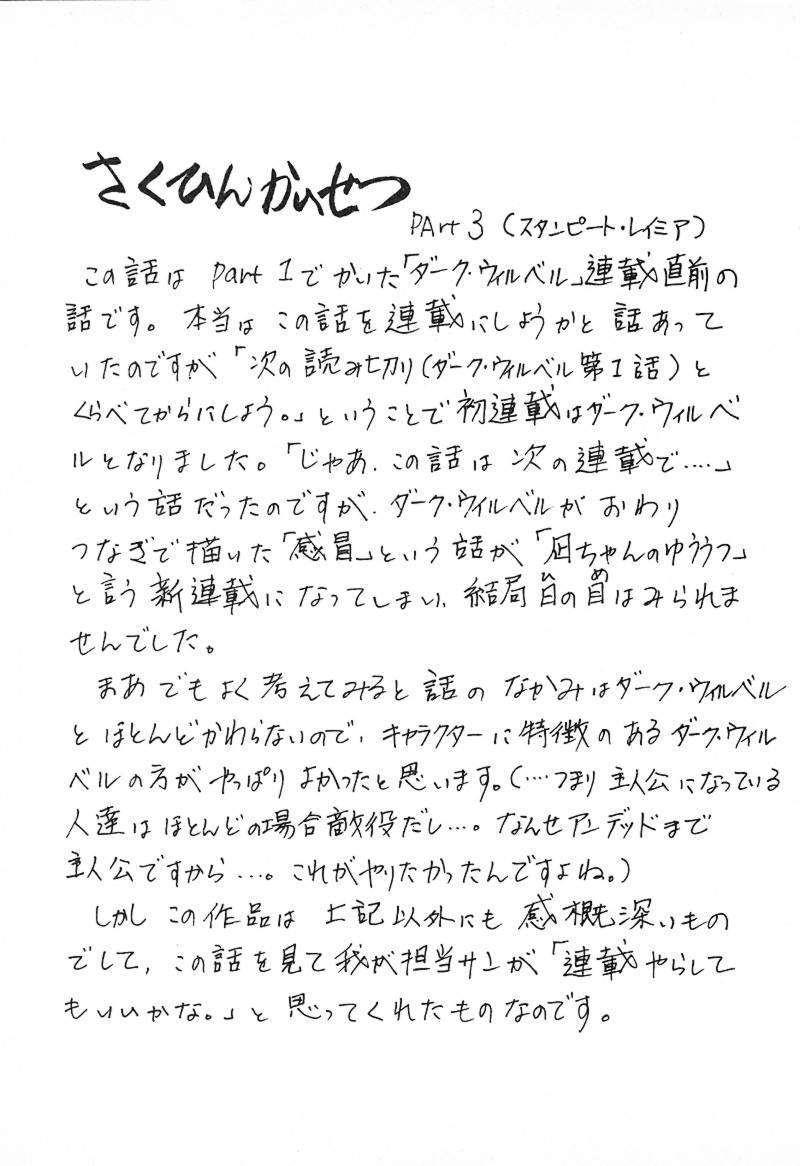 さくひんかいせつ
PArt 3 (スタンピート・レイミア)
この話は part 1でかいた「ダーク・ウィルベル」連載直前の
話です。本当はこの話を連載にしようかと話あって
いたのですが「次の読み切り(ダーク・ウィルベル第1話)と
くらべてからにしよう。」ということで初連載はダーク・ウィルベ
ルとなりました。「じゃあ、この話は次の連載で‥‥」
という話だったのですが、ダーク・ウィルベルがおわり
つなぎで描いた「感冒」という話が「凪ちゃんのゆううつ」
と言う新連載になってしまい、結局日の目はみられま
せんでした。
まあでもよく考えてみると話のなかみはダーク・ウィルベル
とほとんどかわらないので、キャラクターに特徴のあるダーク・ウィル
ベルの方がやっぱりよかったと思います。(‥‥つまり主人公になっている
人達はほとんどの場合敵役だし‥‥。なんせアンデッドまで
主人公ですから‥‥。これがやりたかったんですよね。)
しかしこの作品は上記以外にも感概深いもの
でして、この話を見て我が担当サンが「連載やらして
もいいかな。」と思ってくれたものなのです。